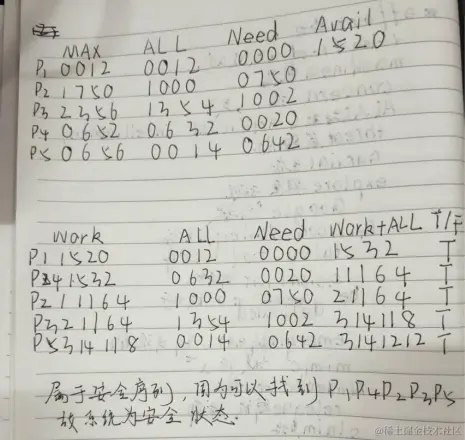 MAX ALL Need Avail
P1 0012 0012 0000 1520
P2 1750 1000 0750
P3 2356 1354 1002
P4 0652 0632 0020
P5 0656 0014 0642
Work ALL Need Work+ALL T/F
P1 1520 0012 0000 1532 T
P4 1532 0632 0020 11164 T
P2 11164 1000 0750 21164 T
P3 21164 1354 1002 314118 T
P5 314118 0014 0642 3141212 T
属于安全序列，因为可以找到 P1P4P2P3P5
故系统为安全状态.
@稀土掘金技术社区